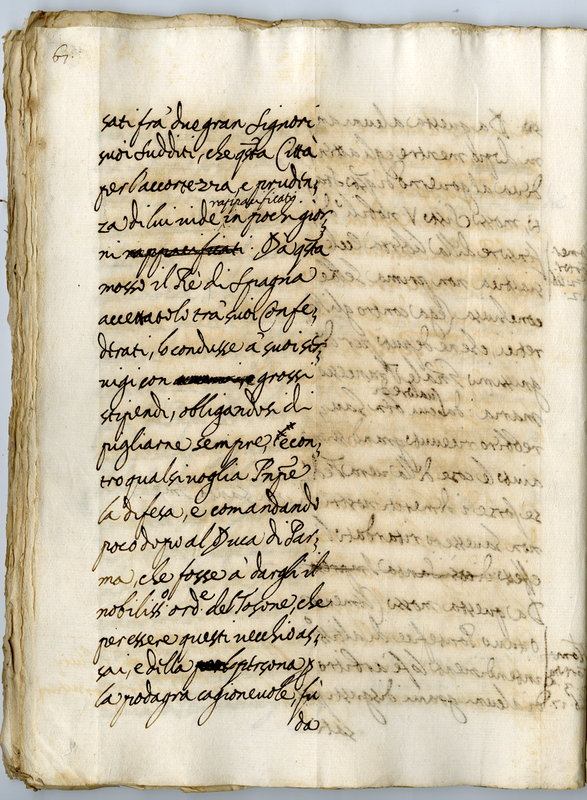 67.
sati frà due gran Signori
suoi sudditi, che q̃sta Città
per l'accortezza, e prudẽ,
rappacificato
za di lui uide in pochi gior,
ni rappacificati. Da q̃sta
mosso il Rè di Spagna
accettatolo trà suoi Confe,
derati, lo condusse à suoi ser,
uigi con grossi
stipendi, obligandosi di
pigliarne sempre, e con,
tro qual si uoglia Pñpe
la difesa, e comandando
poco dopo al Duca di Par,
ma, che fosse à dargli il
nobiliss.o ord.e del Tosone, che
per essere questi uecchio as,
sai, e della persona p
la podagra cagioneuole, fù
da